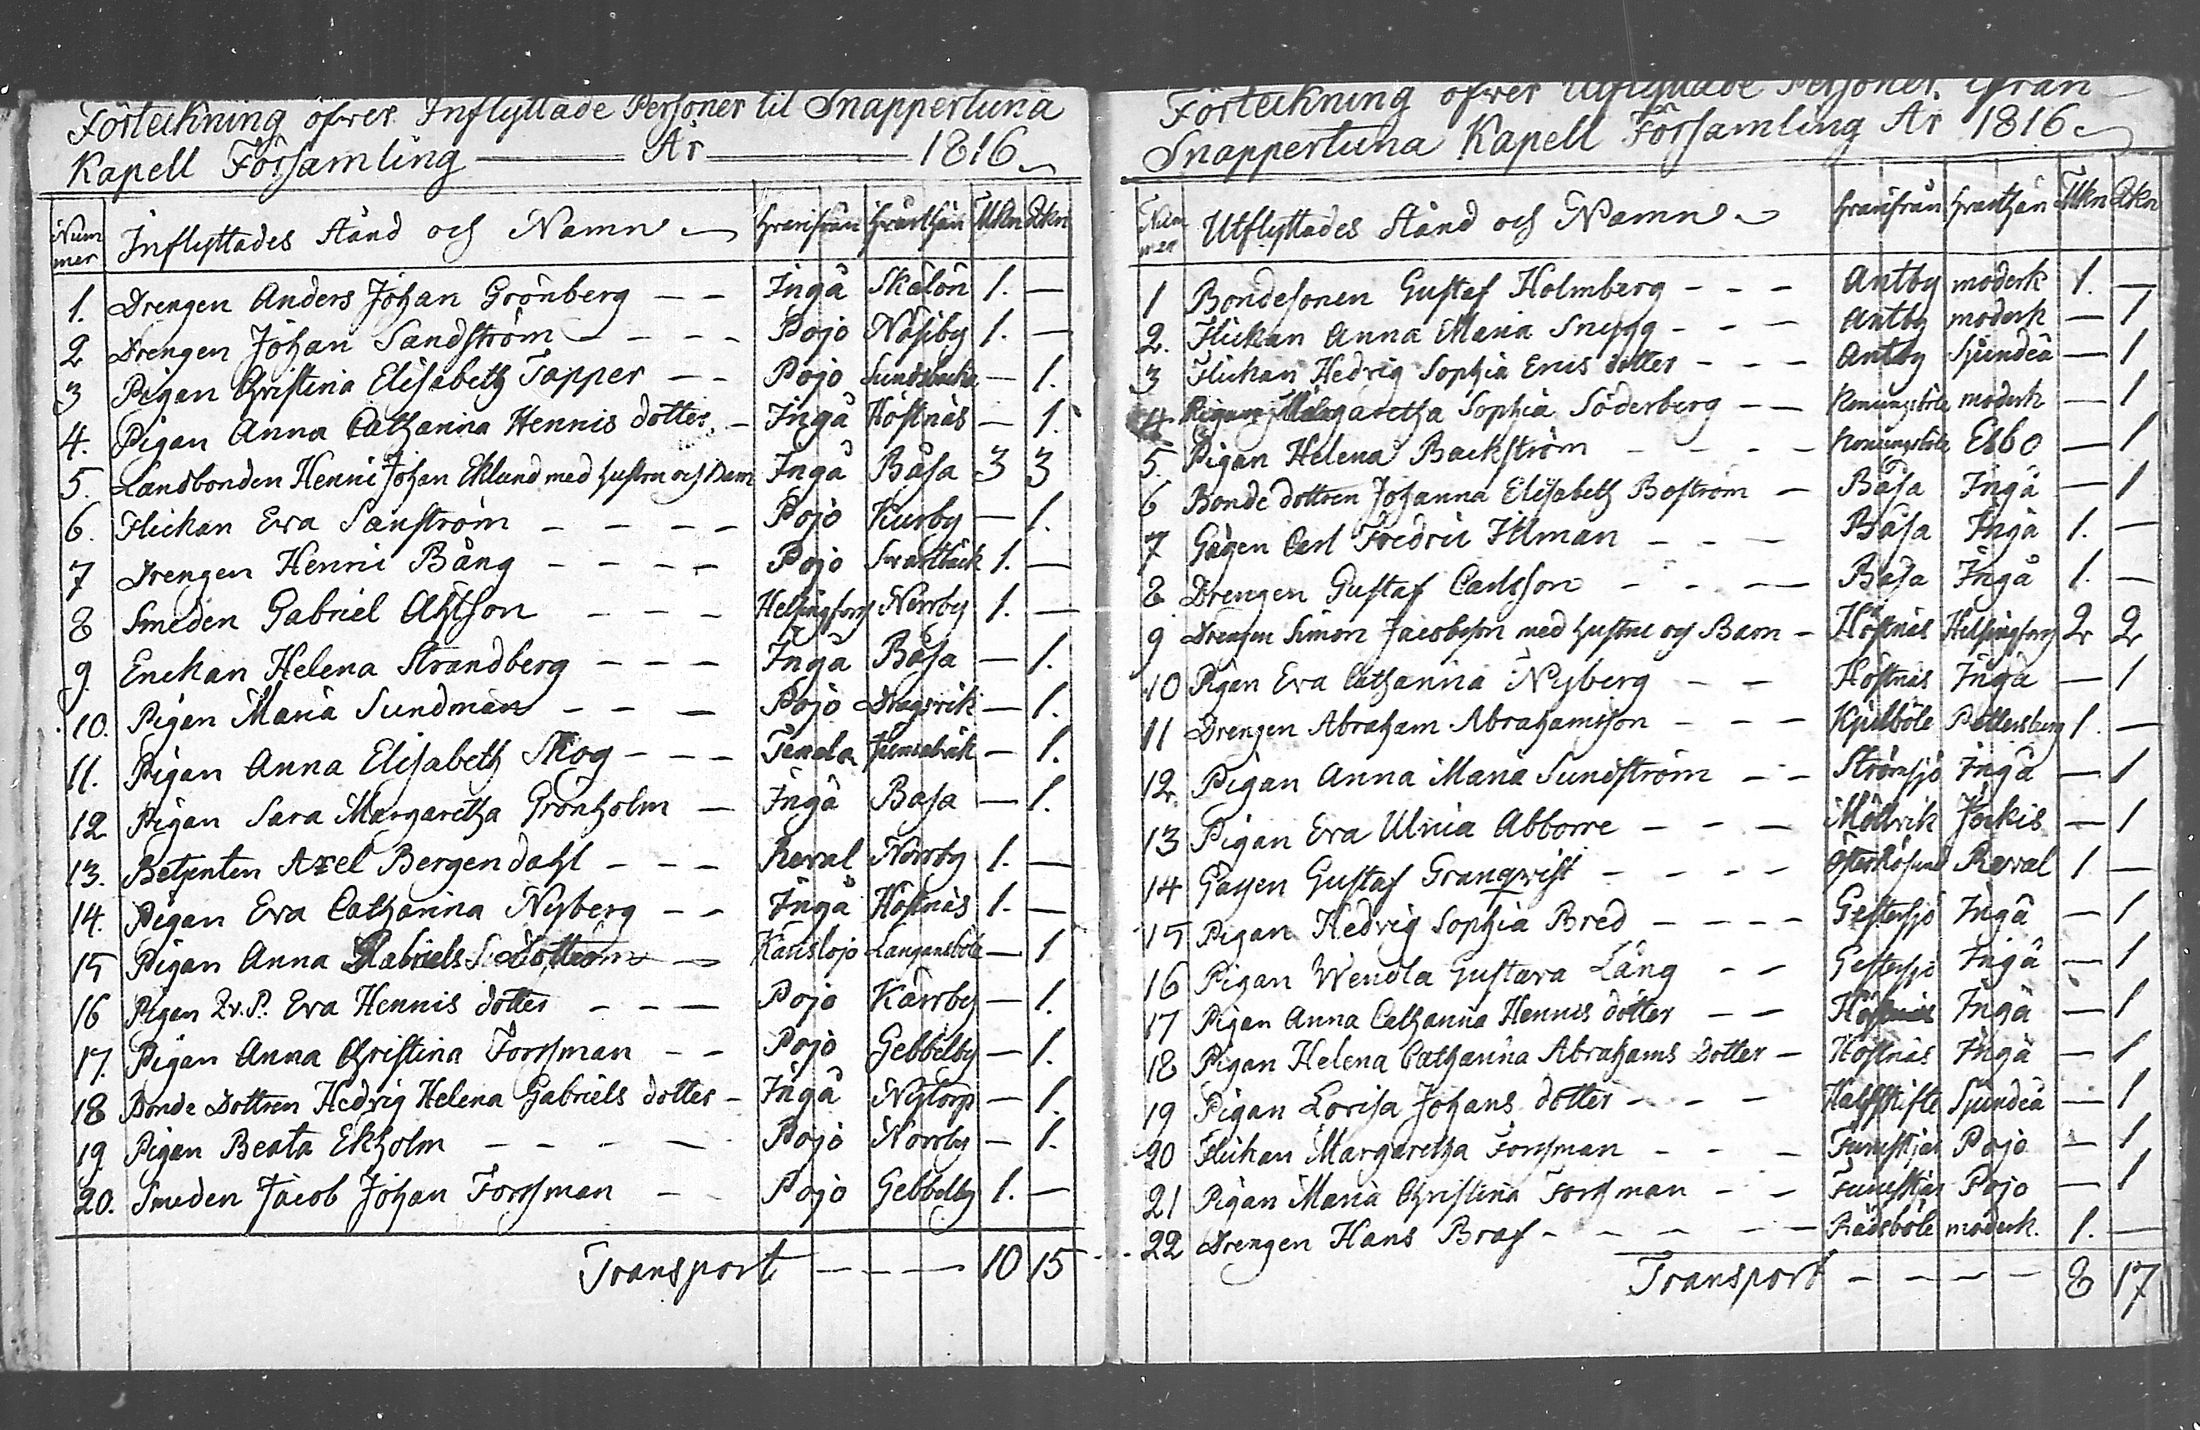 Förteckning öfver Inflyttade Personer til Snappertuna
Kapell Församling — År — 1816
Nummer Inflyttades Stånd och Namn hvarifrån hvarthän Mkn Qkn
1. Drengen Anders Johan Grönberg — — Ingå Skålön 1. —
2 Drengen Johan Sandström — — — — Pojo Näsiby 1. —
3 Pigan Christina Elisabeth Tapper — — Pojo Sundsbacka — 1.
4. Pigan Anna Catharina Henrics dotter — Ingå Höstnäs — 1.
5. Landbonden Henric Johan Eklund med hustru och Barn Ingå Båsa 3 3
6. Flickan Eva Sanström — — — — Pojo Kursby — 1.
7 Drengen Henric Bång — — — — Pojo Svartbäck 1. —
8 Smeden Gabriel Ahlson — — — Helsingfors Norrby 1. —
9 Enckan Helena Strandberg — — — Ingå Båsa — 1.
10. Pigan Maria Sundman — — — Pojo Dragsvik — 1.
11. Pigan Anna Elisabeth Skog — — — Tenala — 1.
12 Pigan Sara Margaretha Grönholm — Ingå Basa — 1.
13. Betjenten Axel Bergendahl — — — Reval Norrby 1. —
14. Pigan Eva Catharina Nyberg — — Ingå Höstnäs 1. —
15 Pigan Anna Gabriels dotter — Karislojo Langansböle — 1
16 Pigan Qv. P. Eva Henrics dotter — — — Pojo Kärrby — 1.
17. Pigan Anna Christina Forssman — — Pojo Gebbelby — 1.
18 Bonde Dottren Hedvig Helena Gabriels dotter — Ingå Nytorp — 1.
19 Pigan Beata Ekholm — — — — Pojo Norrby — 1.
20. Smeden Jacob Johan Forssman — — Pojo Gebbelby 1. —
Transport — — — 10 15
Förteckning öfver Utflyttade Personer ifrån
Snappertuna Kapell Församling År 1816
Nummer Utflyttades Stånd och Namn hvarifrån hvarthän Mkn Qkn
1 Bondesonen Gustaf Holmberg — — — Antby moderk 1. —
2. Flickan Anna Maria Snygg — — — Antby moderk — 1
3 Flickan Hedvig Sophia Erics dotter — — — Antby Sjundeå — 1
4 Pigan Margaretha Sophia Söderberg — — Konungsböle moderk — 1
5. Pigan Helena Backström — — — — Konungsböle Esbo — 1
6 Bonde dottren Johanna Elisabeth Boström — Båsa Ingå — 1
7 Gågen Carl Fredric Illman — — — Båsa Ingå 1. —
8 Drengen Gustaf Carlsson — — — — Båsa Ingå 1. —
9 Drengen Simon Jacobsson med hustru och Barn — Höstnäs Helsingfors 2 2
10 Pigan Eva Catharina Nyberg — — Höstnäs Ingå — 1
11 Drengen Abraham Abrahamsson — — — Kjellböle Pettersburg 1. —
12. Pigan Anna Maria Sundström — — Strömsjö Ingå — 1
13 Pigan Eva Ulrica Abborre — — — Möllvik Jockis — 1
14 Gagen Gustaf Granqvist — — — — Reval 1 —
15 Pigan Hedvig Sophia Bred — — — — Gestersjö Ingå — 1
16 Pigan Wendla Gustava Lång — — Gestersjö Ingå — 1
17 Pigan Anna Catharina Henrics dotter — — Höstnäs Ingå — 1
18 Pigan Helena Catharina Abrahams Dotter — Höstnäs Ingå — 1
19 Pigan Lovisa Johans dotter — — — Halfskifte Sjundeå — 1
20 Flickan Margaretha Forssman — — — Pojo — 1
21 Pigan Maria Christina Forssman — — Pojo — 1
22 Drengen Hans Braf — — — — — Rådsböle moderk. 1. —
Transport — — — — 8 17